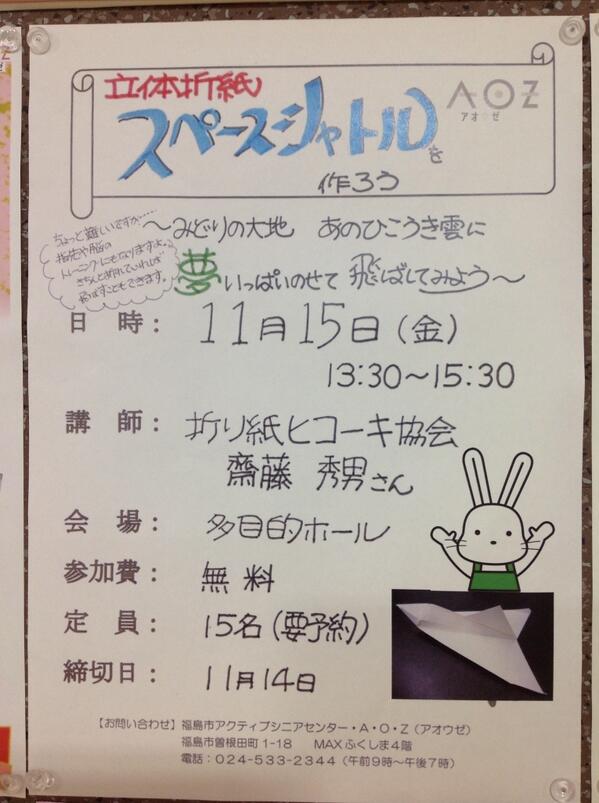 立体折紙
スペースシャトルを
作ろう
AOZ
アオウゼ
ちょっと難しいですが……
指先や脳の
トレーニングにもなりますよ。
きちんと折れていれば
飛ばすこともできます。
～みどりの大地 あのひこうき雲に
夢いっぱいのせて 飛ばしてみよう～
日 時： 11月15日(金)
13:30～15:30
講 師： 折り紙ヒコーキ協会
齋藤 秀男さん
会 場： 多目的ホール
参加費： 無料
定 員： 15名(要予約)
締切日： 11月14日
【お問い合わせ】福島市アクティブシニアセンター・A・O・Z（アオウゼ）
福島市曽根田町1-18 MAXふくしま4階
電話：024-533-2344（午前9時～午後7時）